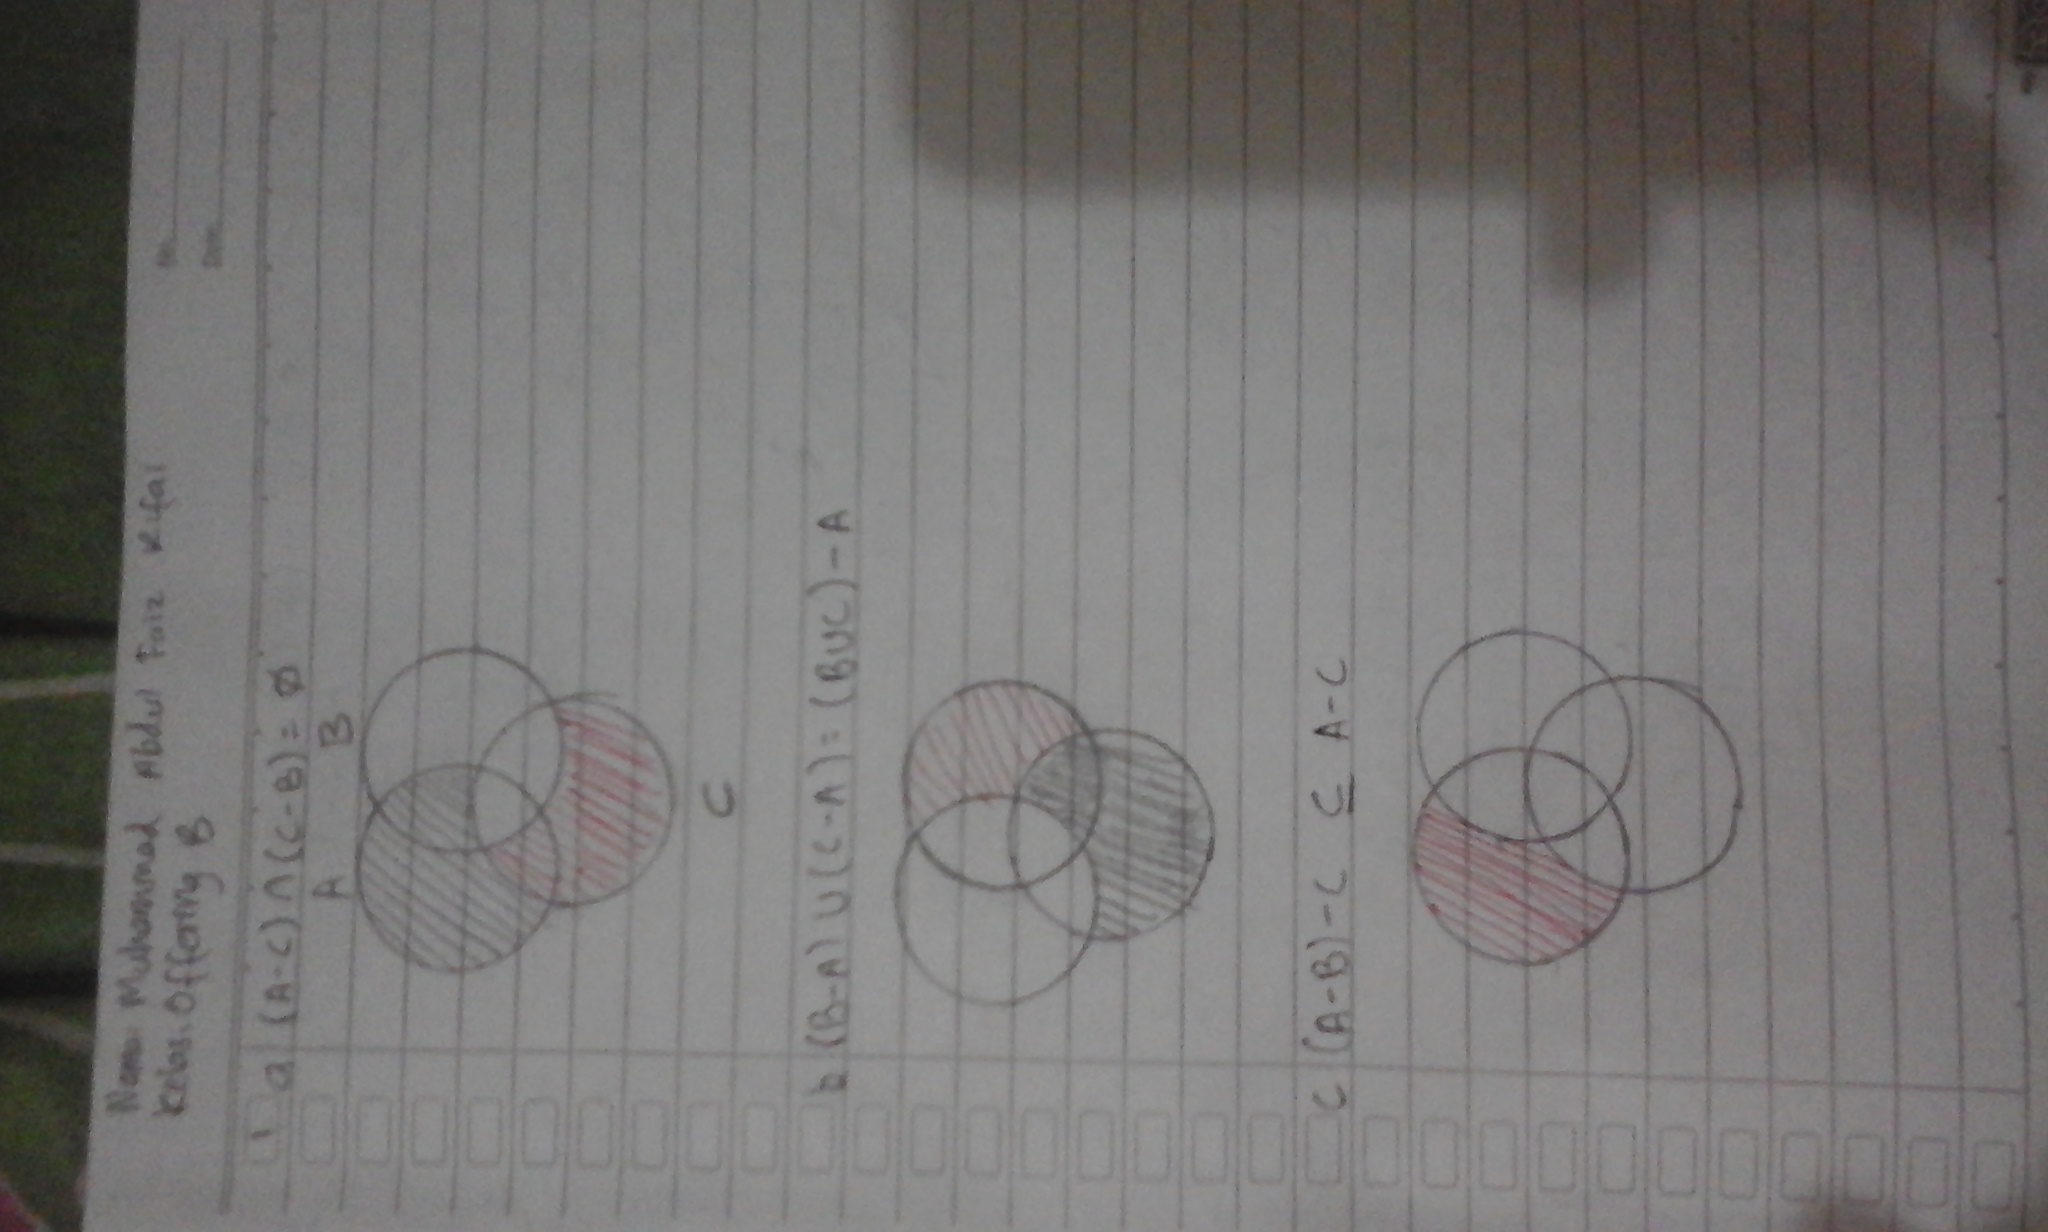 Nama: Muhammad Abdul Faiz Rifai
Kelas: Offering B
No.
Date:
1 a (A-C) ∩ (C-B) = Ø
A B
C
b (B-A) ∪ (C-A) = (B∪C) - A
c (A-B) - C ⊆ A-C